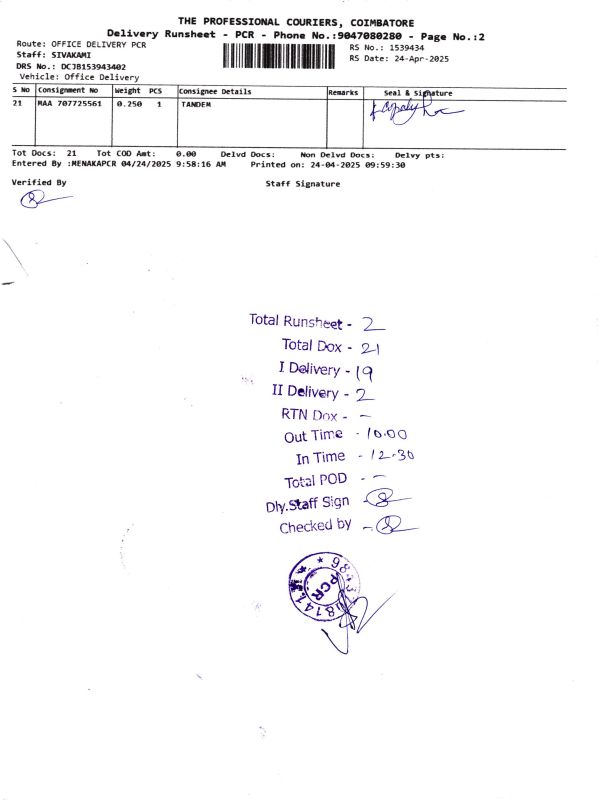 THE PROFESSIONAL COURIERS, COIMBATORE
Delivery Runsheet - PCR - Phone No.:9047080280 - Page No.:2
Route: OFFICE DELIVERY PCR
RS No.: 1539434
Staff: SIVAKAMI
RS Date: 24-Apr-2025
DRS No.: DCJB153943402
Vehicle: Office Delivery
S No Consignment No Weight PCS Consignee Details Remarks Seal & Signature
21 MAA 707725561 0.250 1 TANDEM
Tot Docs: 21 Tot COD Amt: 0.00 Delvd Docs: Non Delvd Docs: Delvy pts:
Entered By :MENAKAPCR 04/24/2025 9:58:16 AM Printed on: 24-04-2025 09:59:30
Verified By Staff Signature
Total Runsheet - 2
Total Dox - 21
I Delivery - 19
II Delivery - 2
RTN Dox - -
Out Time - 10.00
In Time - 12.30
Total POD - -
Dly.Staff Sign -
Checked by -
PCR